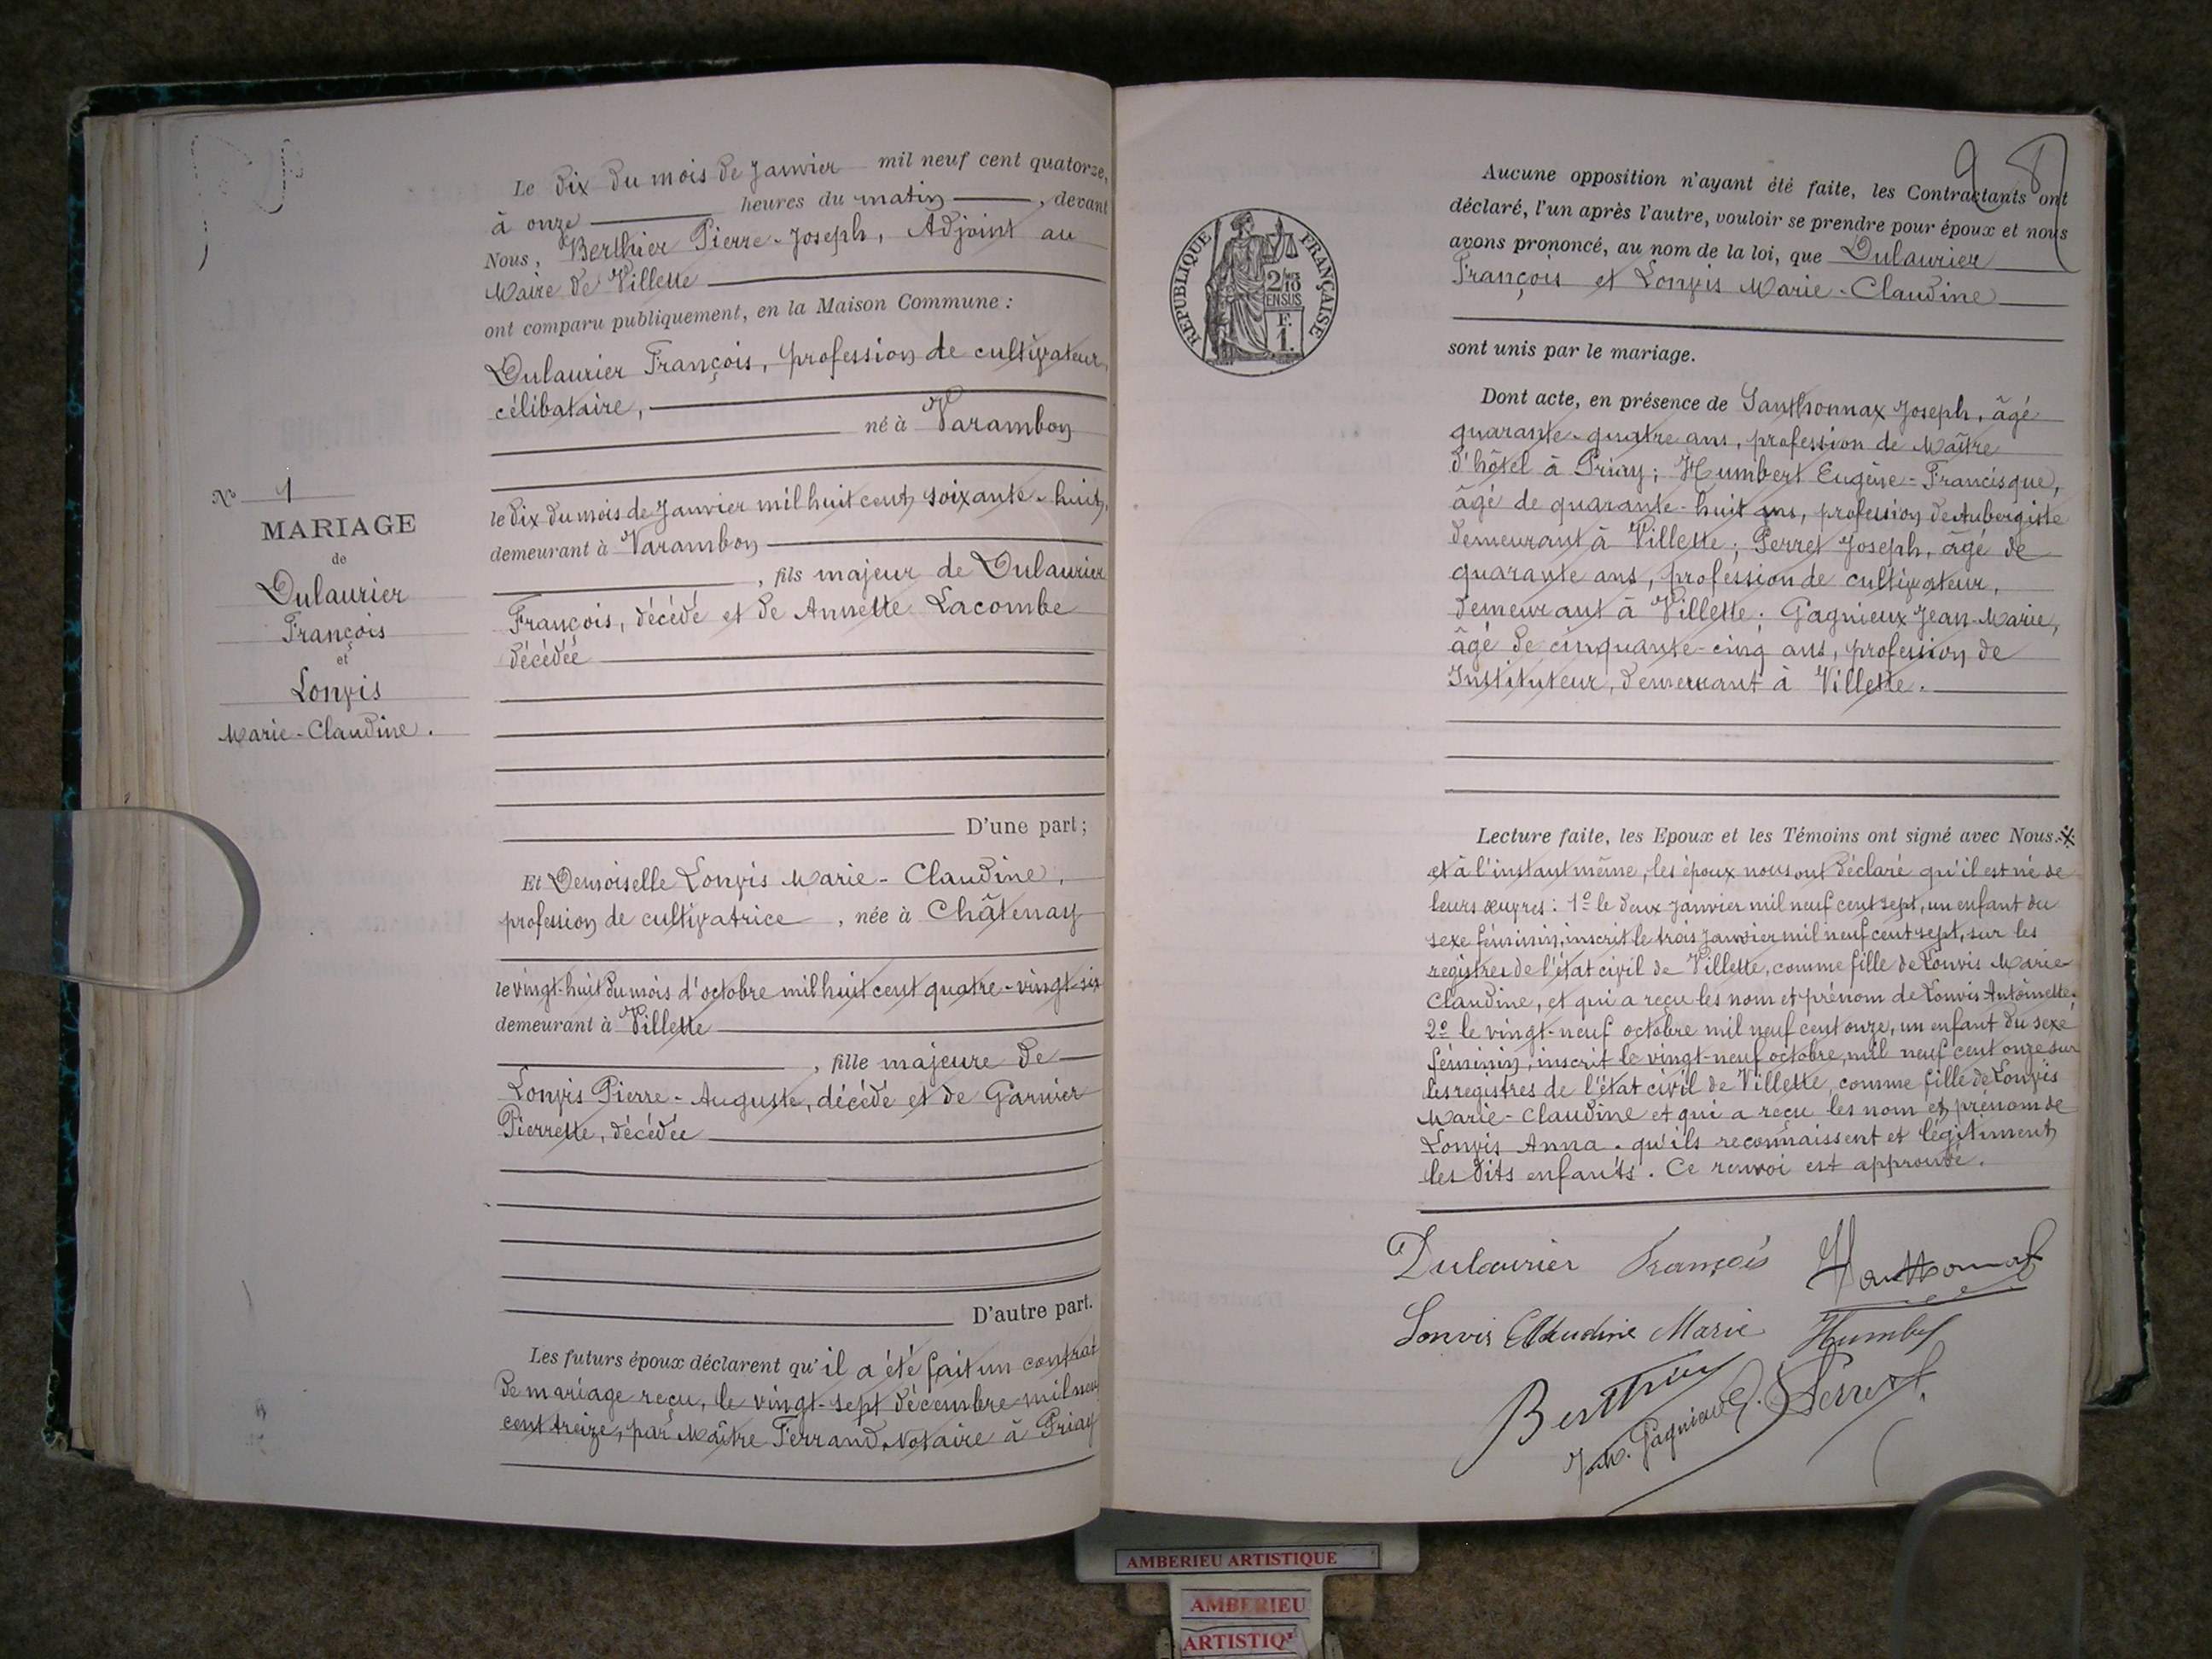 Le dix du mois de Janvier mil neuf cent quatorze,
à onze heures du matin, devant
Nous, Berthier Pierre-Joseph, Adjoint au
Maire de Villette
ont comparu publiquement, en la Maison Commune :
Dulaurier François, profession de cultivateur,
célibataire,
né à Varambon
le dix du mois de Janvier mil huit cent soixante-huit,
demeurant à Varambon
, fils majeur de Dulaurier
François, décédé et de Annette Lacombe
décédée
D'une part ;
Et Demoiselle Lonvis Marie-Claudine,
profession de cultivatrice, née à Châtenay
le vingt-huit du mois d'octobre mil huit cent quatre-vingt-six
demeurant à Villette
, fille majeure de
Lonvis Pierre-Auguste, décédé et de Garnier
Pierrette, décédée
D'autre part.
Les futurs époux déclarent qu'il a été fait un contrat
de mariage reçu, le vingt-sept décembre mil neuf
cent treize, par Maître Ferrand, Notaire à Priay
No 1
MARIAGE
de
Dulaurier
François
et
Lonvis
Marie-Claudine.
REPUBLIQUE FRANÇAISE
2/10
EN SUS
F.
1.
Aucune opposition n'ayant été faite, les Contractants ont
déclaré, l'un après l'autre, vouloir se prendre pour époux et nous
avons prononcé, au nom de la loi, que Dulaurier
François et Lonvis Marie-Claudine
sont unis par le mariage.
Dont acte, en présence de Santhonnax Joseph, âgé
quarante-quatre ans, profession de Maître
d'hôtel à Priay ; Humbert Eugène-Francisque,
âgé de quarante-huit ans, profession de Aubergiste
demeurant à Villette ; Perret Joseph, âgé de
quarante ans, profession de cultivateur,
demeurant à Villette ; Gagnieux Jean-Marie,
âgé de cinquante-cinq ans, profession de
Instituteur, demeurant à Villette.
Lecture faite, les Epoux et les Témoins ont signé avec Nous.
et à l'instant même, les époux nous ont déclaré qu'il est né de
leurs œuvres : 1º le deux Janvier mil neuf cent sept, un enfant du
sexe féminin, inscrit le trois Janvier mil neuf cent sept, sur les
registres de l'état civil de Villette, comme fille de Lonvis Marie-
Claudine, et qui a reçu les nom et prénom de Lonvis Antoinette.
2º le vingt-neuf octobre mil neuf cent onze, un enfant du sexe
féminin, inscrit le vingt-neuf octobre, mil neuf cent onze sur
les registres de l'état civil de Villette, comme fille de Lonvis
Marie-Claudine et qui a reçu les nom et prénom de
Lonvis Anna. qu'ils reconnaissent et légitiment
les dits enfants. Ce renvoi est approuvé.
Dulaurier François
Lonvis Claudine Marie
Humbert
Berthier
J.M. Gagnieux
Perret
AMBERIEU ARTISTIQUE
AMBERIEU
ARTISTIQ